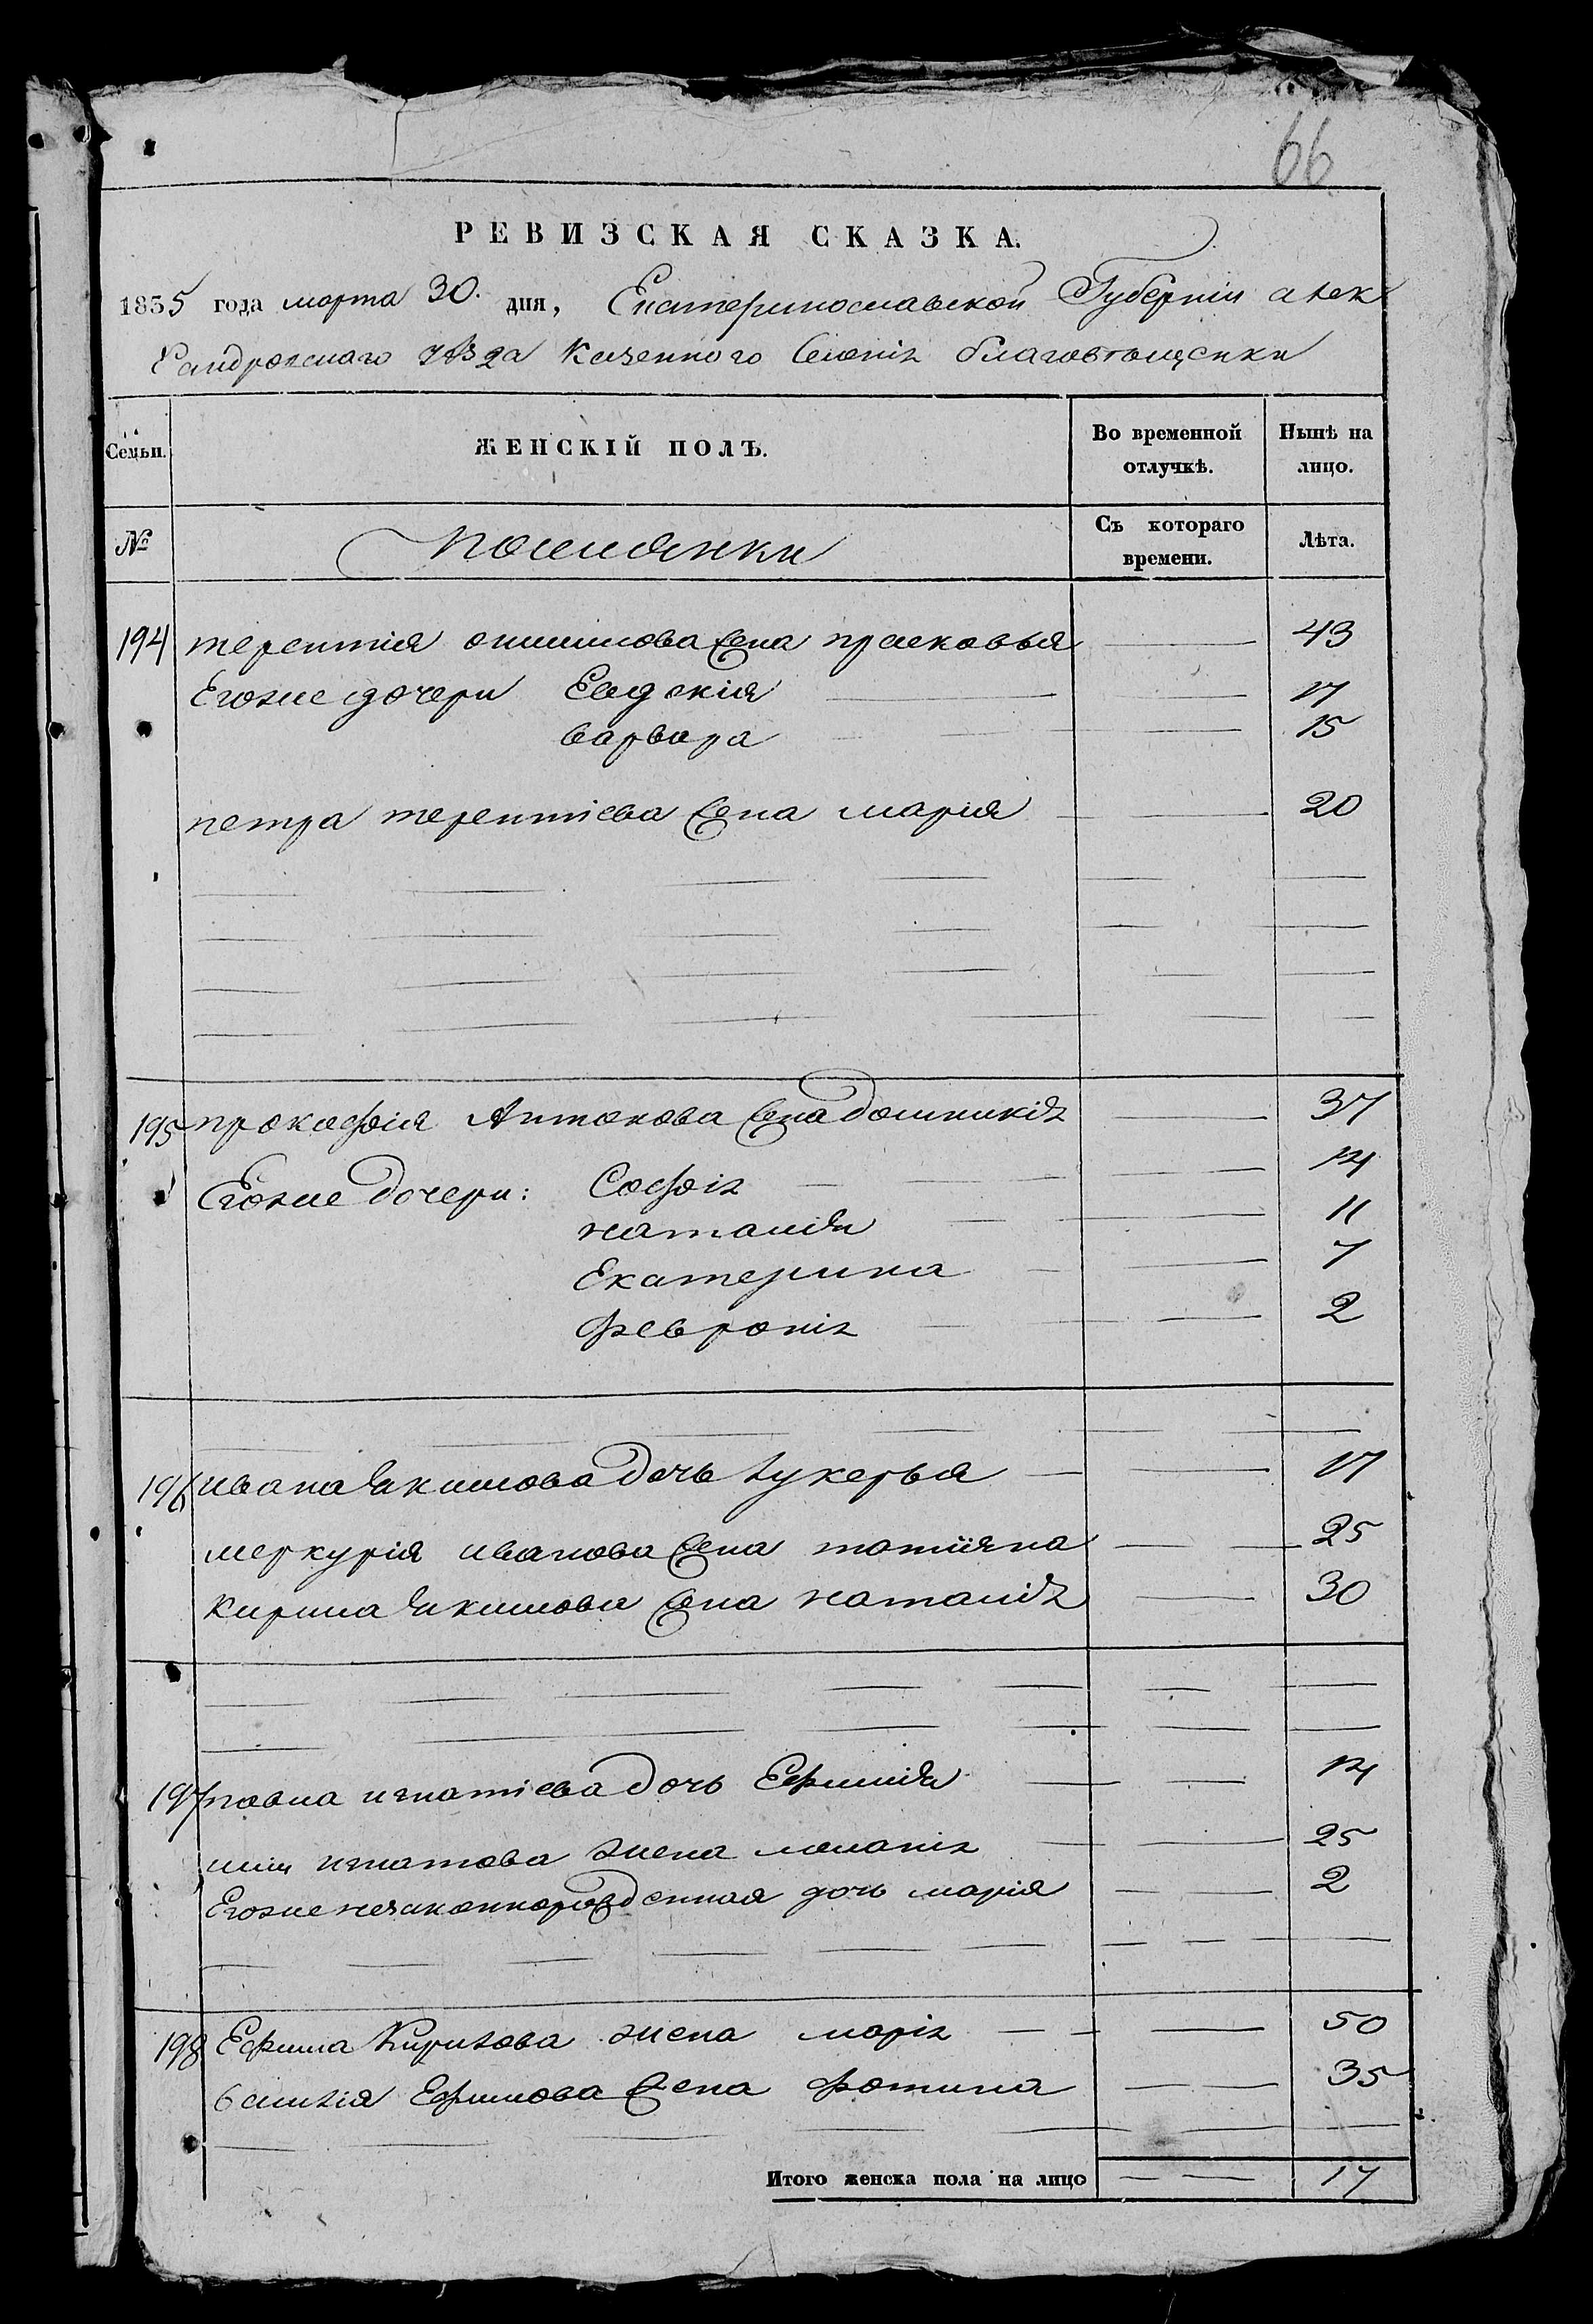 66
РЕВИЗСКАЯ СКАЗКА.
1835 года марта 30. дня, Екатеринославской Губерніи алек
сандровскаго уѣзда Казенного Селенія благовѣщенки
Семьи. ЖЕНСКІЙ ПОЛЪ. Во временной отлучкѣ. Нынѣ на лицо.
№ поселянки Съ котораго времени. Лѣта.
194 терентія жена прасковья 43
Егоже дочери Евдокія 17
варвара 15
петра терентіева жена марія 20
195 прокофія Антонова жена домникія 37
Егоже дочери: Софія 14
наталія 11
Екатерина 7
февронія 2
196 ивана Якимова дочь лукерья 17
меркурія иванова жена татіяна 25
кирила Якимова жена наталія 30
197 павла игнатіева дочь Ефимія 14
игнатова жена меланія 25
Егоже незаконнорожденная дочь марія 2
198 Ефима Кирилова жена марія 50
василія Ефимова жена фотина 35
Итого женска пола на лицо 17